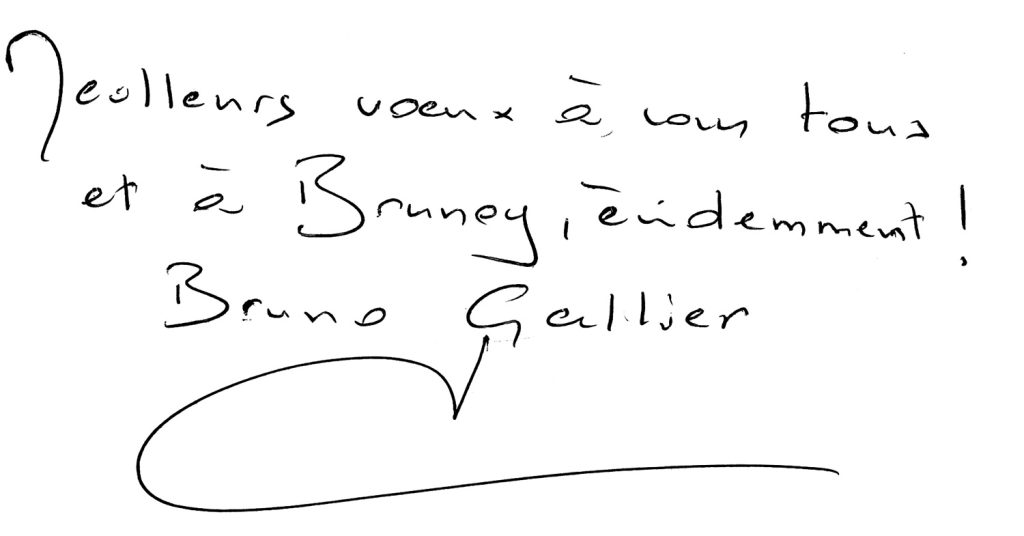 Meilleurs voeux à vous tous
et à Brunoy, évidemment !
Bruno Gallier